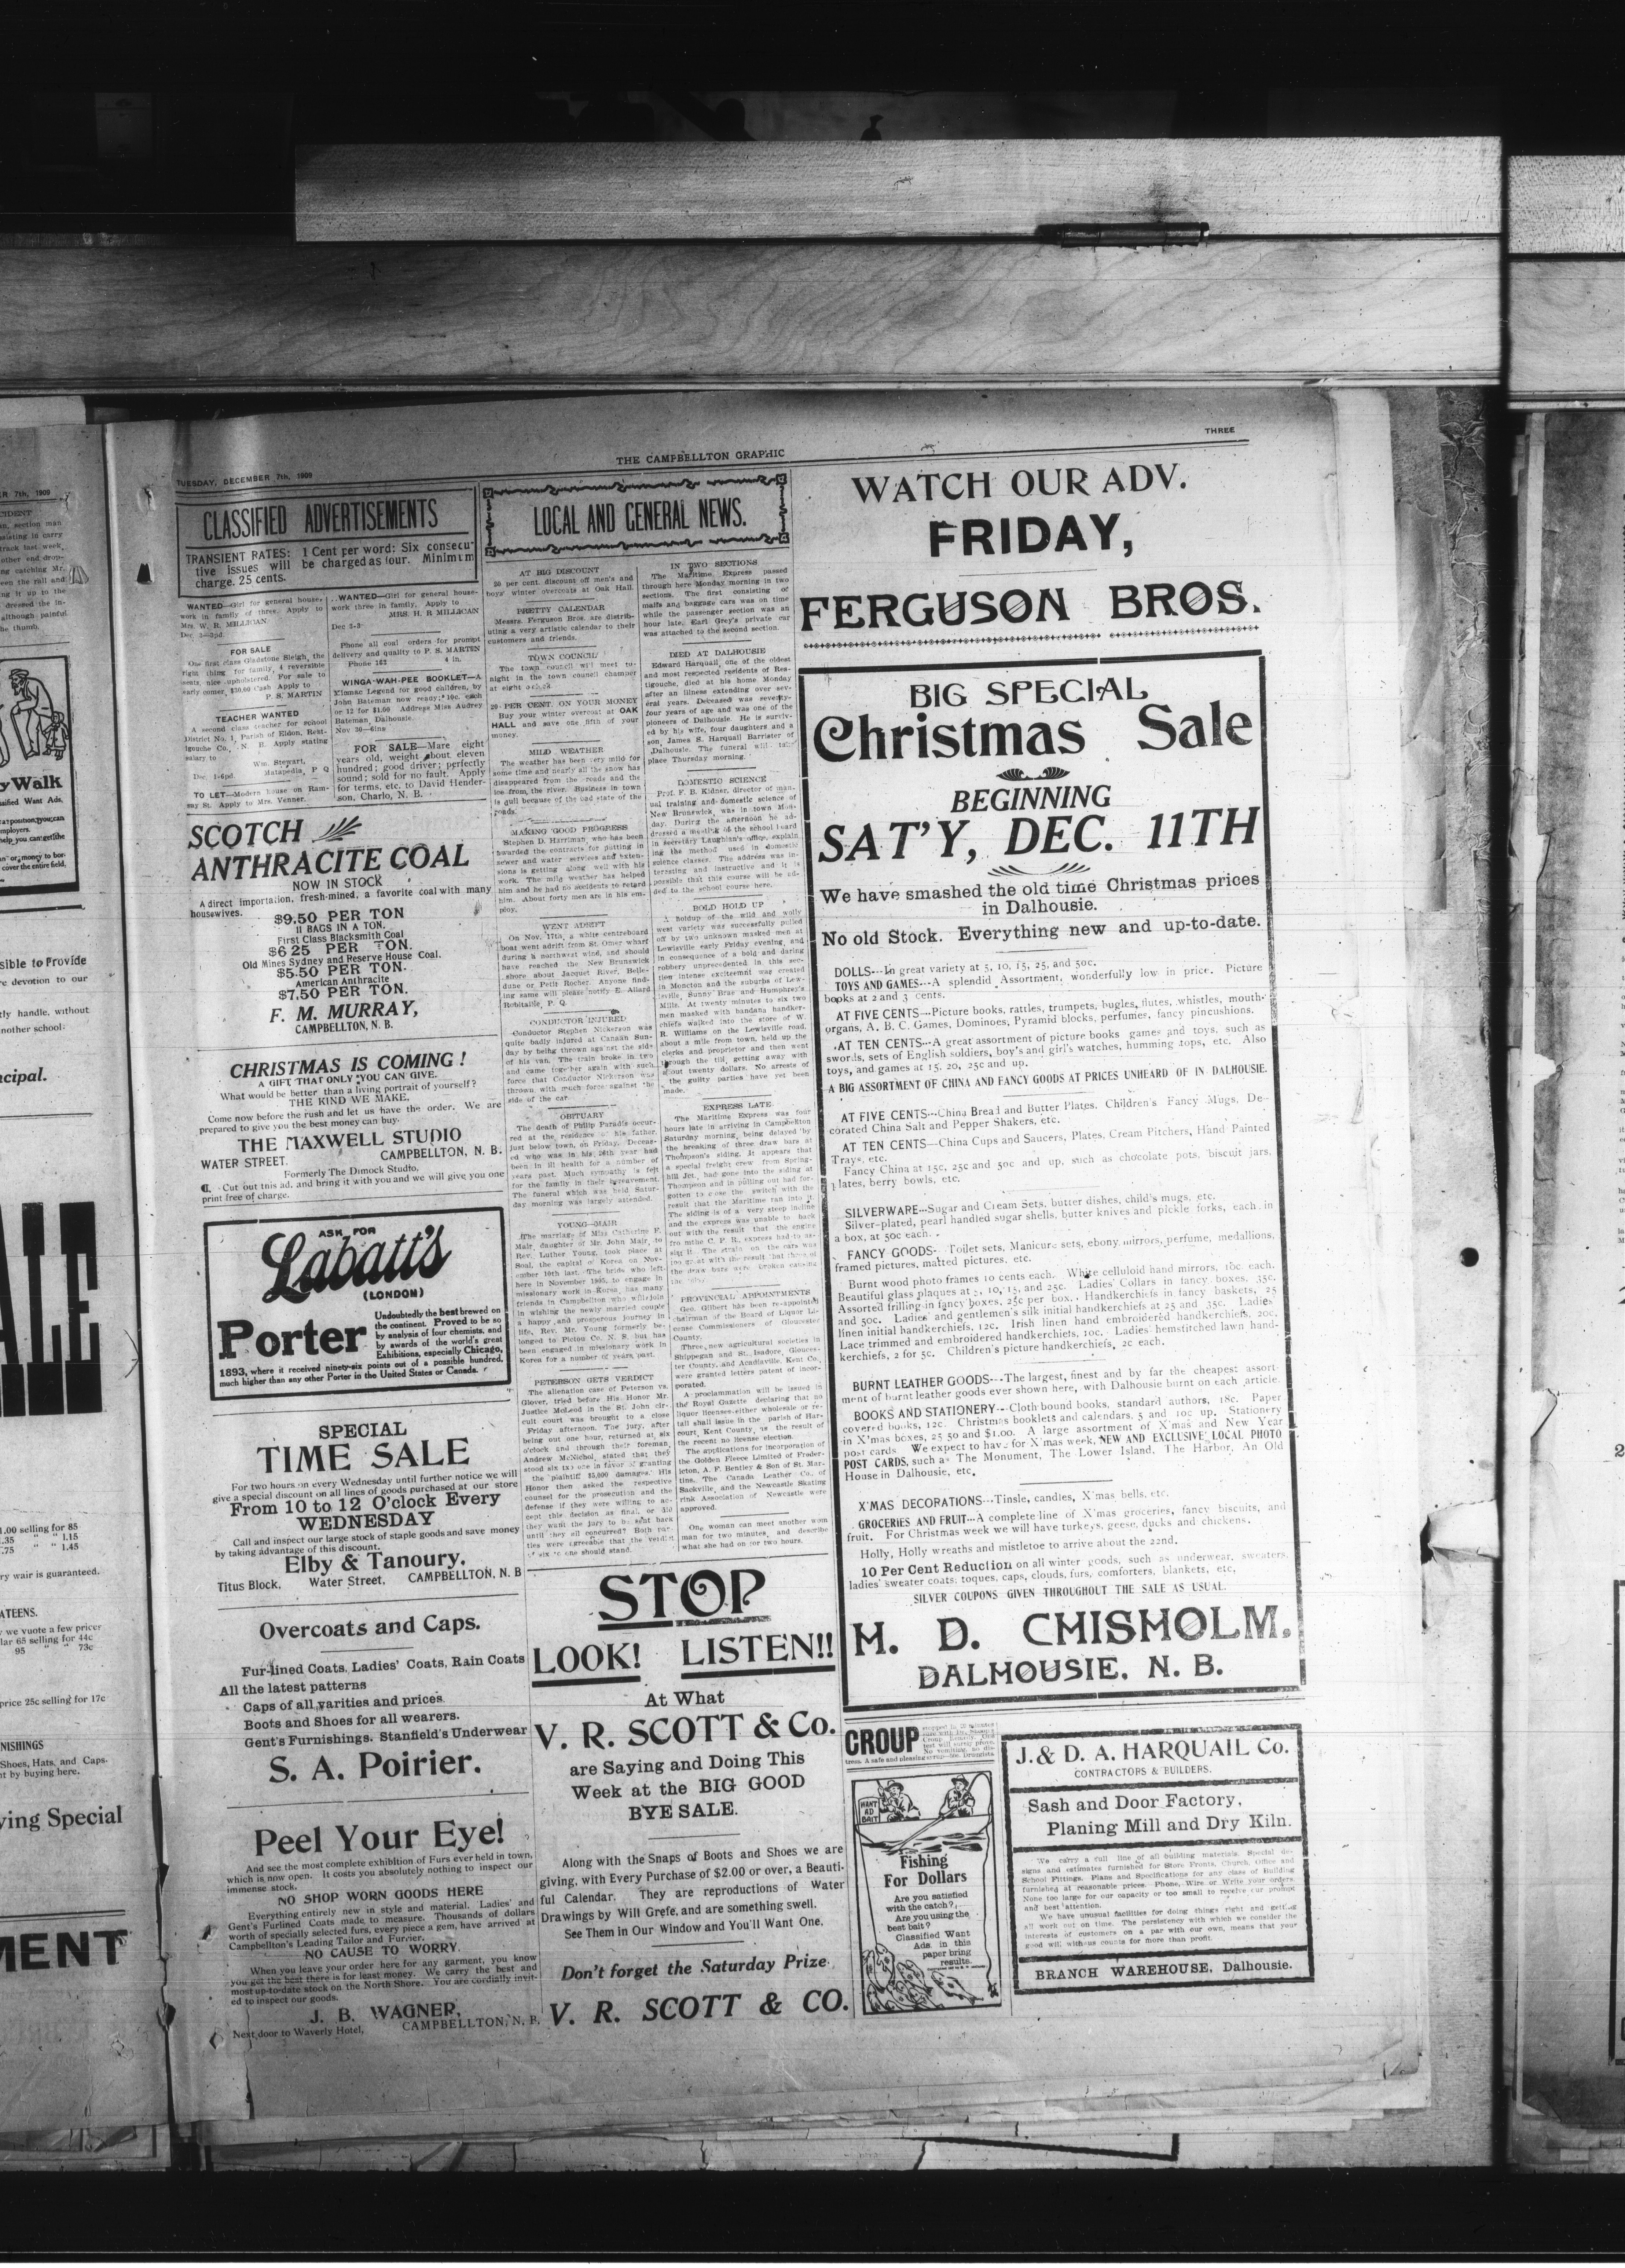 TUESDAY, DECEMBER 7th, 1909
THE CAMPBELLTON GRAPHIC
THREE
CLASSIFIED ADVERTISEMENTS
TRANSIENT RATES: 1 Cent per word: Six consecu-
tive issues will be charged as four. Minimum
charge. 25 cents.
WANTED—Girl for general house-
work in family of three. Apply to
Mrs. W. R. MILLIGAN.
Dec 3—3pd.
FOR SALE
One first class Gladstone Sleigh, the
right thing for family, 4 reversible
seats, nice upholstered. For sale to
early comer, $30.00 Cash Apply to
P. S. MARTIN
TEACHER WANTED
A second class teacher for school
District No. 1, Parish of Eldon, Rest-
igouche Co., N. B. Apply stating
salary to
Wm. Stewart,
Matapedia, P Q
Dec. 1-6pd.
TO LET—Modern house on Ram-
say St. Apply to Mrs. Venner.
WANTED—Girl for general house-
work three in family. Apply to
MRS. H. R MILLICAN
Dec 3-3
Phone all coal orders for prompt
delivery and quality to P. S. MARTIN
Phone 162 4 in.
WINGA-WAH-PEE BOOKLET—A
Micmac Legend for good children, by
John Bateman now ready; 10c. each
or 12 for $1.00 Address Miss Audrey
Bateman, Dalhousie.
Nov 30—6ins
FOR SALE—Mare eight
years old, weight about eleven
hundred; good driver; perfectly
sound; sold for no fault. Apply
for terms, etc. to David Hender-
son, Charlo, N. B.
SCOTCH
ANTHRACITE COAL
NOW IN STOCK
A direct importation, fresh-mined, a favorite coal with many
housewives.
$9.50 PER TON
11 BAGS IN A TON.
First Class Blacksmith Coal
$6 25 PER TON.
Old Mines Sydney and Reserve House Coal.
$5.50 PER TON.
American Anthracite
$7.50 PER TON.
F. M. MURRAY,
CAMPBELLTON, N. B.
CHRISTMAS IS COMING!
A GIFT THAT ONLY YOU CAN GIVE.
What would be better than a living portrait of yourself?
THE KIND WE MAKE.
Come now before the rush and let us have the order. We are
prepared to give you the best money can buy.
THE MAXWELL STUDIO
WATER STREET, CAMPBELLTON, N. B.
Formerly The Dimock Studio.
¶. Cut out this ad, and bring it with you and we will give you one
print free of charge.
ASK FOR
Labatt's
(LONDON)
Porter
Undoubtedly the best brewed on
the continent. Proved to be so
by analysis of four chemists, and
by awards of the world's great
Exhibitions, especially Chicago,
1893, where it received ninety-six points out of a possible hundred,
much higher than any other Porter in the United States or Canada.
SPECIAL
TIME SALE
For two hours on every Wednesday until further notice we will
give a special discount on all lines of goods purchased at our store
From 10 to 12 O'clock Every
WEDNESDAY
Call and inspect our large stock of staple goods and save money
by taking advantage of this discount.
Elby & Tanoury.
Titus Block, Water Street, CAMPBELLTON, N. B
Overcoats and Caps.
Fur-lined Coats, Ladies' Coats, Rain Coats
All the latest patterns
Caps of all varities and prices.
Boots and Shoes for all wearers.
Gent's Furnishings. Stanfield's Underwear
S. A. Poirier.
Peel Your Eye!
And see the most complete exhibition of Furs ever held in town,
which is now open. It costs you absolutely nothing to inspect our
immense stock.
NO SHOP WORN GOODS HERE
Everything entirely new in style and material. Ladies' and
Gent's Furlined Coats made to measure. Thousands of dollars
worth of specially selected furs, every piece a gem, have arrived at
Campbellton's Leading Tailor and Furrier.
NO CAUSE TO WORRY.
When you leave your order here for any garment, you know
you get the best there is for least money. We carry the best and
most up-to-date stock on the North Shore. You are cordially invit-
ed to inspect our goods.
J. B. WAGNER,
Next door to Waverly Hotel, CAMPBELLTON, N. B.
LOCAL AND GENERAL NEWS.
AT BIG DISCOUNT
20 per cent. discount off men's and
boys' winter overcoats at Oak Hall.
PRETTY CALENDAR
Messrs. Ferguson Bros. are distrib-
uting a very artistic calendar to their
customers and friends.
TOWN COUNCIL
The town council will meet to-
night in the town council chamber
at eight o'clock.
20 PER CENT. ON YOUR MONEY
Buy your winter overcoat at OAK
HALL and save one fifth of your
money.
MILD WEATHER
The weather has been very mild for
some time and nearly all the snow has
disappeared from the roads and the
ice from the river. Business in town
is gull because of the bad state of the
roads.
MAKING GOOD PROGRESS
Stephen D. Harriman, who has been
awarded the contracts for putting in
sewer and water services and exten-
sions is getting along well with his
work. The mild weather has helped
him and he had no accidents to retard
him. About forty men are in his em-
ploy.
WENT ADRIFT
On Nov. 17th, a white centreboard
boat went adrift from St. Omer wharf
during a northwest wind, and should
have reached the New Brunswick
shore about Jacquet River, Belle-
dune or Petit Rocher. Anyone find-
ing same will please notify E. Allard
Robitaille, P. Q.
CONDUCTOR INJURED
Conductor Stephen Nickerson was
quite badly injured at Canaan Sun-
day by being thrown against the side
of his van. The train broke in two
and came together again with such
force that Conductor Nickerson was
thrown with much force against the
side of the car.
OBITUARY
The death of Philip Paradis occur-
red at the residence of his father,
just below town, on Friday. Deceas-
ed who was in his 26th year had
been in ill health for a number of
years past. Much sympathy is felt
for the family in their bereavement.
The funeral which was held Satur-
day morning was largely attended.
YOUNG—MAIR
The marriage of Miss Catherine F.
Mair, daughter of Mr. John Mair, to
Rev. Luther Young, took place at
Soal, the capital of Korea on Nov-
ember 10th last. The bride who left
here in November 1905, to engage in
missionary work in Korea, has many
friends in Campbellton who will join
in wishing the newly married couple
a happy and prosperous journey in
life. Rev. Mr. Young formerly be-
longed to Pictou Co. N. S. but has
been engaged in missionary work in
Korea for a number of years past.
PETERSON GETS VERDICT
The alienation case of Peterson vs.
Glover, tried before His Honor Mr.
Justice McLeod in the St. John cir-
cuit court was brought to a close
Friday afternoon. The jury, after
being out one hour, returned at six
o'clock and through their foreman,
Andrew McNichol stated that they
stood six to one in favor of granting
the plaintiff $5,000 damages. His
Honor then asked the respective
counsel for the prosecution and the
defense if they were willing to ac-
cept this decision as final, or did
they want the jury to be sent back
until they all concurred? Both par-
ties were agreeable that the verdict
of six to one should stand.
IN TWO SECTIONS
The Maritime Express passed
through here Monday morning in two
sections. The first consisting of
mails and baggage cars was on time
while the passenger section was an
hour late. Earl Grey's private car
was attached to the second section.
DIED AT DALHOUSIE
Edward Harquail, one of the oldest
and most respected residents of Res-
tigouche, died at his home Monday
after an illness extending over sev-
eral years. Deceased was seventy-
four years of age and was one of the
pioneers of Dalhousie. He is surviv-
ed by his wife, four daughters and a
son, James S. Harquail Barrister of
Dalhousie. The funeral will take
place Thursday morning.
DOMESTIC SCIENCE
Prof. F. B. Kidner, director of man-
ual training and domestic science of
New Brunswick, was in town Mon-
day. During the afternoon he ad-
dressed a meeting of the school board
in secretary Laughlan's office, explain
ing the method used in domestic
science classes. The address was in-
teresting and instructive and it is
possible that this course will be ad-
ded to the school course here.
BOLD HOLD UP
A holdup of the wild and wolly
west variety was successfully pulled
off by two unknown masked men at
Lewisville early Friday evening, and
in consequence of a bold and daring
robbery unprecedented in this sec-
tion intense excitement was created
in Moncton and the suburbs of Lew-
isville, Sunny Brae and Humphrey's
Mills. At twenty minutes to six two
men masked with bandana handker-
chiefs walked into the store of W.
R. Williams on the Lewisville road,
about a mile from town, held up the
clerks and proprietor and then went
through the till, getting away with
about twenty dollars. No arrests of
the guilty parties have yet been
made.
EXPRESS LATE
The Maritime Express was four
hours late in arriving in Campbellton
Saturday morning, being delayed by
the breaking of three draw bars at
Thompson's siding. It appears that
a special freight crew from Spring-
hill Jct. had gone into the siding at
Thompson and in pulling out had for-
gotten to close the switch with the
result that the Maritime ran into it.
The siding is of a very steep incline
and the express was unable to back
out with the result that the engine
fro mthe C. P. R. express had to as-
sist it. The strain on the cars was
too great with the result that three of
the draw bars were broken causing
the delay.
PROVINCIAL APPOINTMENTS
Geo. Gilbert has been re-appointed
chairman of the Board of Liquor Li-
cense Commissioners of Gloucester
County.
Three new agricultural societies in
Shippegan and St. Isadore, Glouces-
ter County, and Acadiaville, Kent Co.,
were granted letters patent of incor-
porated.
A proclammation will be issued in
the Royal Gazette declaring that no
liquor licenses either wholesale or re-
tail shall issue in the parish of Har-
court, Kent County, as the result of
the recent no license election.
The applications for incorporation of
the Golden Fleece Limited of Freder-
icton, A. F. Bentley & Son of St. Mar-
tins, The Canada Leather Co., of
Sackville, and the Newcastle Skating
rink Association of Newcastle were
approved.
One woman can meet another wom
man for two minutes, and describe
what she had on for two hours.
STOP
LOOK! LISTEN!!
At What
V. R. SCOTT & Co.
are Saying and Doing This
Week at the BIG GOOD
BYE SALE.
Along with the Snaps of Boots and Shoes we are
giving, with Every Purchase of $2.00 or over, a Beauti-
ful Calendar. They are reproductions of Water
Drawings by Will Grefe, and are something swell.
See Them in Our Window and You'll Want One.
Don't forget the Saturday Prize
V. R. SCOTT & CO.
WATCH OUR ADV.
FRIDAY,
FERGUSON BROS.
BIG SPECIAL
Christmas Sale
BEGINNING
SAT'Y, DEC. 11TH
We have smashed the old time Christmas prices
in Dalhousie.
No old Stock. Everything new and up-to-date.
DOLLS---In great variety at 5, 10, 15, 25, and 50c.
TOYS AND GAMES---A splendid Assortment, wonderfully low in price. Picture
books at 2 and 3 cents.
AT FIVE CENTS---Picture books, rattles, trumpets, bugles, flutes, whistles, mouth-
organs, A. B. C. Games, Dominoes, Pyramid blocks, perfumes, fancy pincushions.
AT TEN CENTS---A great assortment of picture books games and toys, such as
swords, sets of English soldiers, boy's and girl's watches, humming tops, etc. Also
toys, and games at 15, 20, 25c and up.
A BIG ASSORTMENT OF CHINA AND FANCY GOODS AT PRICES UNHEARD OF IN DALHOUSIE.
AT FIVE CENTS---China Bread and Butter Plates, Children's Fancy Mugs, De-
corated China Salt and Pepper Shakers, etc.
AT TEN CENTS—China Cups and Saucers, Plates, Cream Pitchers, Hand Painted
Trays, etc.
Fancy China at 15c, 25c and 50c and up, such as chocolate pots, biscuit jars,
plates, berry bowls, etc.
SILVERWARE---Sugar and Cream Sets, butter dishes, child's mugs, etc.
Silver-plated, pearl handled sugar shells, butter knives and pickle forks, each in
a box, at 50c each.
FANCY GOODS- Toilet sets, Manicure sets, ebony mirrors, perfume, medallions,
framed pictures, matted pictures, etc.
Burnt wood photo frames 10 cents each. White celluloid hand mirrors, 18c each.
Beautiful glass plaques at 5, 10, 15, and 25c. Ladies' Collars in fancy boxes, 35c.
Assorted frilling in fancy boxes, 25c per box. Handkerchiefs in fancy baskets, 25
and 50c. Ladies' and gentlemen's silk initial handkerchiefs at 25 and 35c. Ladies'
linen initial handkerchiefs, 12c. Irish linen hand embroidered handkerchiefs, 20c.
Lace trimmed and embroidered handkerchiefs, 10c. Ladies' hemstitched lawn hand-
kerchiefs, 2 for 5c. Children's picture handkerchiefs, 2c each.
BURNT LEATHER GOODS---The largest, finest and by far the cheapest assort-
ment of burnt leather goods ever shown here, with Dalhousie burnt on each article.
BOOKS AND STATIONERY---Cloth bound books, standard authors, 18c. Paper
covered books, 12c. Christmas booklets and calendars, 5 and 10c up. Stationery
in X'mas boxes, 25 50 and $1.00. A large assortment of X'mas and New Year
post cards We expect to have for X'mas week, NEW AND EXCLUSIVE LOCAL PHOTO
POST CARDS, such as The Monument, The Lower Island, The Harbor, An Old
House in Dalhousie, etc.
X'MAS DECORATIONS---Tinsle, candles, X'mas bells, etc.
GROCERIES AND FRUIT---A complete line of X'mas groceries, fancy biscuits, and
fruit. For Christmas week we will have turkeys, geese, ducks and chickens.
Holly, Holly wreaths and mistletoe to arrive about the 22nd.
10 Per Cent Reduction on all winter goods, such as underwear, sweaters,
ladies' sweater coats, toques, caps, clouds, furs, comforters, blankets, etc,
SILVER COUPONS GIVEN THROUGHOUT THE SALE AS USUAL.
H. D. CHISHOLM.
DALHOUSIE, N. B.
CROUP
stopped in 20 minutes
sure with Dr. Shoop's
Croup Remedy. One
test will surely prove.
No vomiting, no dis-
tress. A safe and pleasing syrup—50c. Druggists.
WANT
AD
BAIT
Fishing
For Dollars
Are you satisfied
with the catch?
Are you using the
best bait?
Classified Want
Ads. in this
paper bring
results.
J. & D. A. HARQUAIL Co.
CONTRACTORS & BUILDERS.
Sash and Door Factory,
Planing Mill and Dry Kiln.
We carry a full line of all building materials. Special de-
signs and estimates furnished for Store Fronts, Church, Office and
School Fittings. Plans and Specifications for any class of Building
furnished at reasonable prices. Phone, Wire or Write your orders.
None too large for our capacity or too small to receive our prompt
and best attention.
We have unusual facilities for doing things right and getting
all work out on time. The persistency with which we consider the
interests of customers on a par with our own, means that your
good will with us counts for more than profit.
BRANCH WAREHOUSE, Dalhousie.